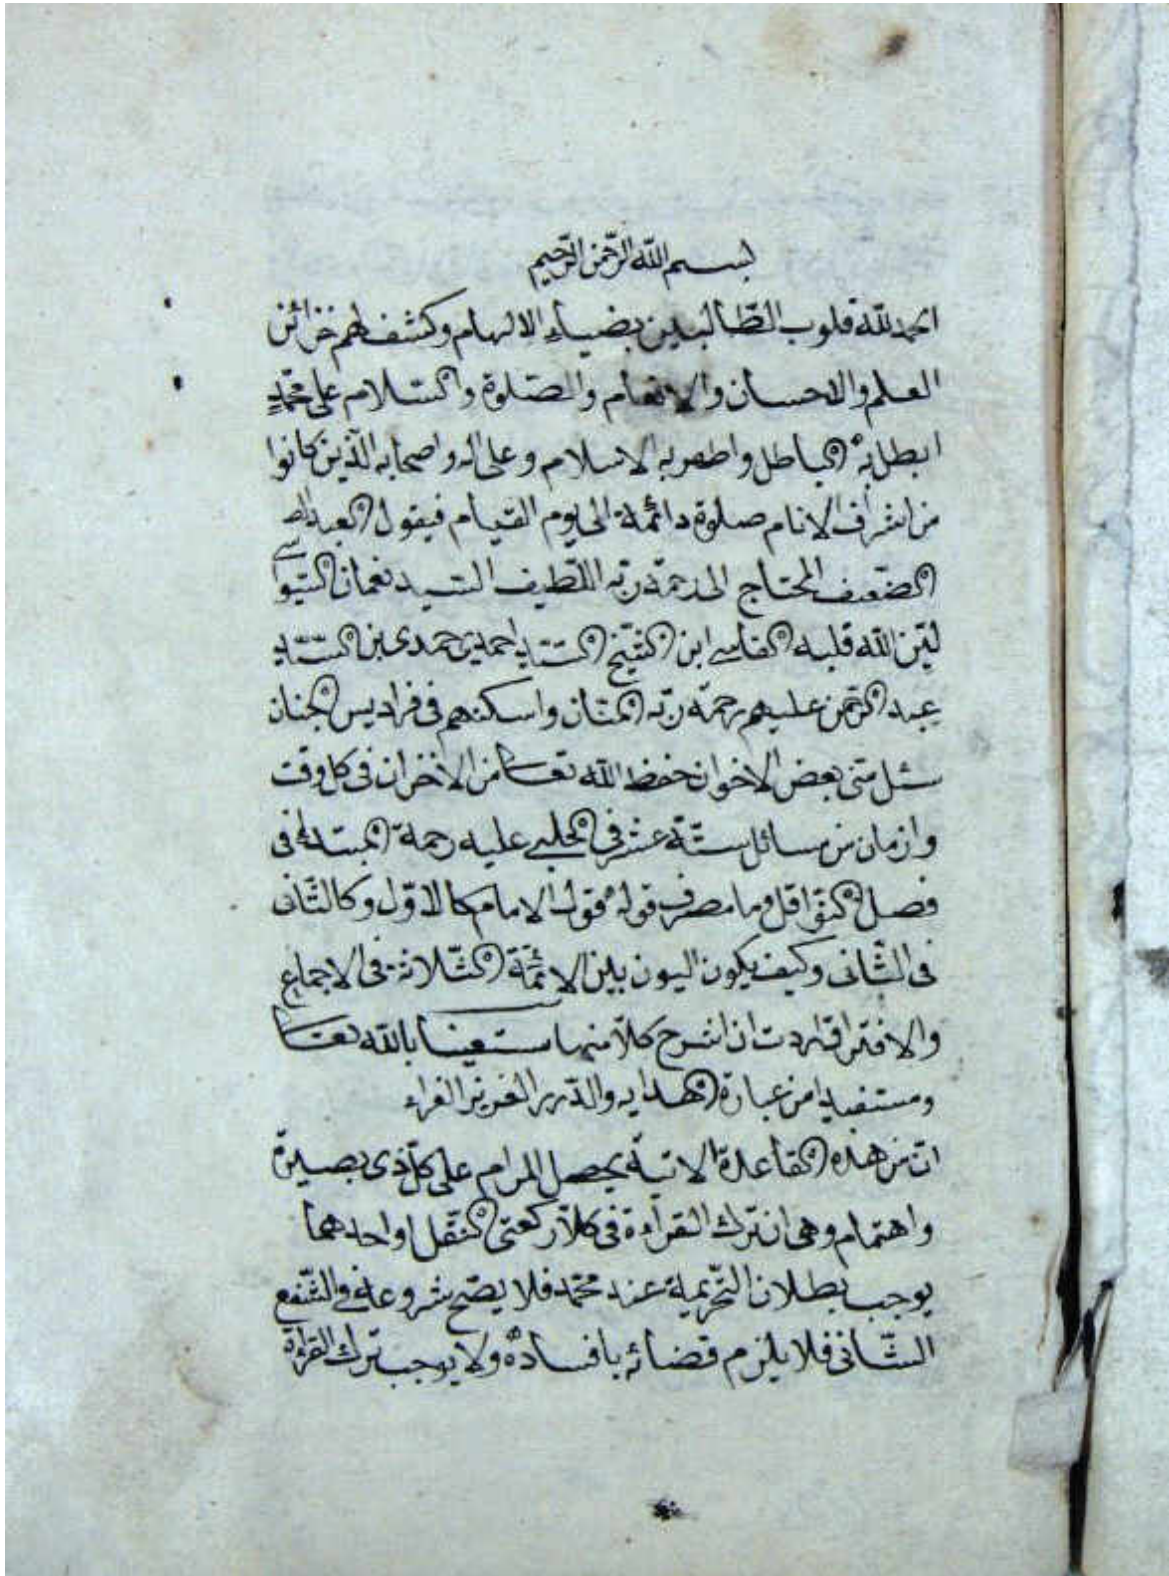 بسم الله الرّحمن الرّحيم
الحمد لله قلوب الطّالبين بضياء الالهام وكشف لهم خزائن
العلم والاحسان والانعام والصّلوة والسّلام على محمّد
ابطل به الباطل واظهر به الاسلام وعلى اله واصحابه الّذين كانوا
من اشراف الانام صلوة دائمة الى يوم القيام فيقول العبد
الضّعيف المحتاج الى رحمة ربّه اللّطيف السّيد نعمان السّيواسى
ليّن الله قلبه القاسى ابن الشّيخ السّيّد احمد حمدى بن السّيّد
عبد الرّحمن عليهم رحمة ربّه المنّان واسكنهم فى فراديس الجنان
سئل منّى بعض الاخوان حفظ الله تعا من الاخزان فى كل وقت
وازمان من مسائل ستّة عشر فى الحلبى عليه رحمة فى
فصل النّوافل وما مصرف قوله فقول الامام كالاوّل وكالثّانى
فى الثّانى وكيف يكون البون بين الائمّة الثّلاثة فى الاجماع
والافتراق اردت ان اشرح كلاّ منها مستعينا بالله تعا
ومستفيدا من عبارة الهدايه والدّرر الغرير الغراء
انّ من هذه القاعدة الاتية يحصل المرام على كلّ ذى بصيرة
واهتمام وهى ان ترك القراءة فى كلا ركعتى النّفل او احدهما
يوجب بطلان التّحريمة عند محمّد فلا يصحّ شروعه فى الشّفع
الثّانى فلا يلزم قضائه بافساده ولا يوجب ترك القراءة